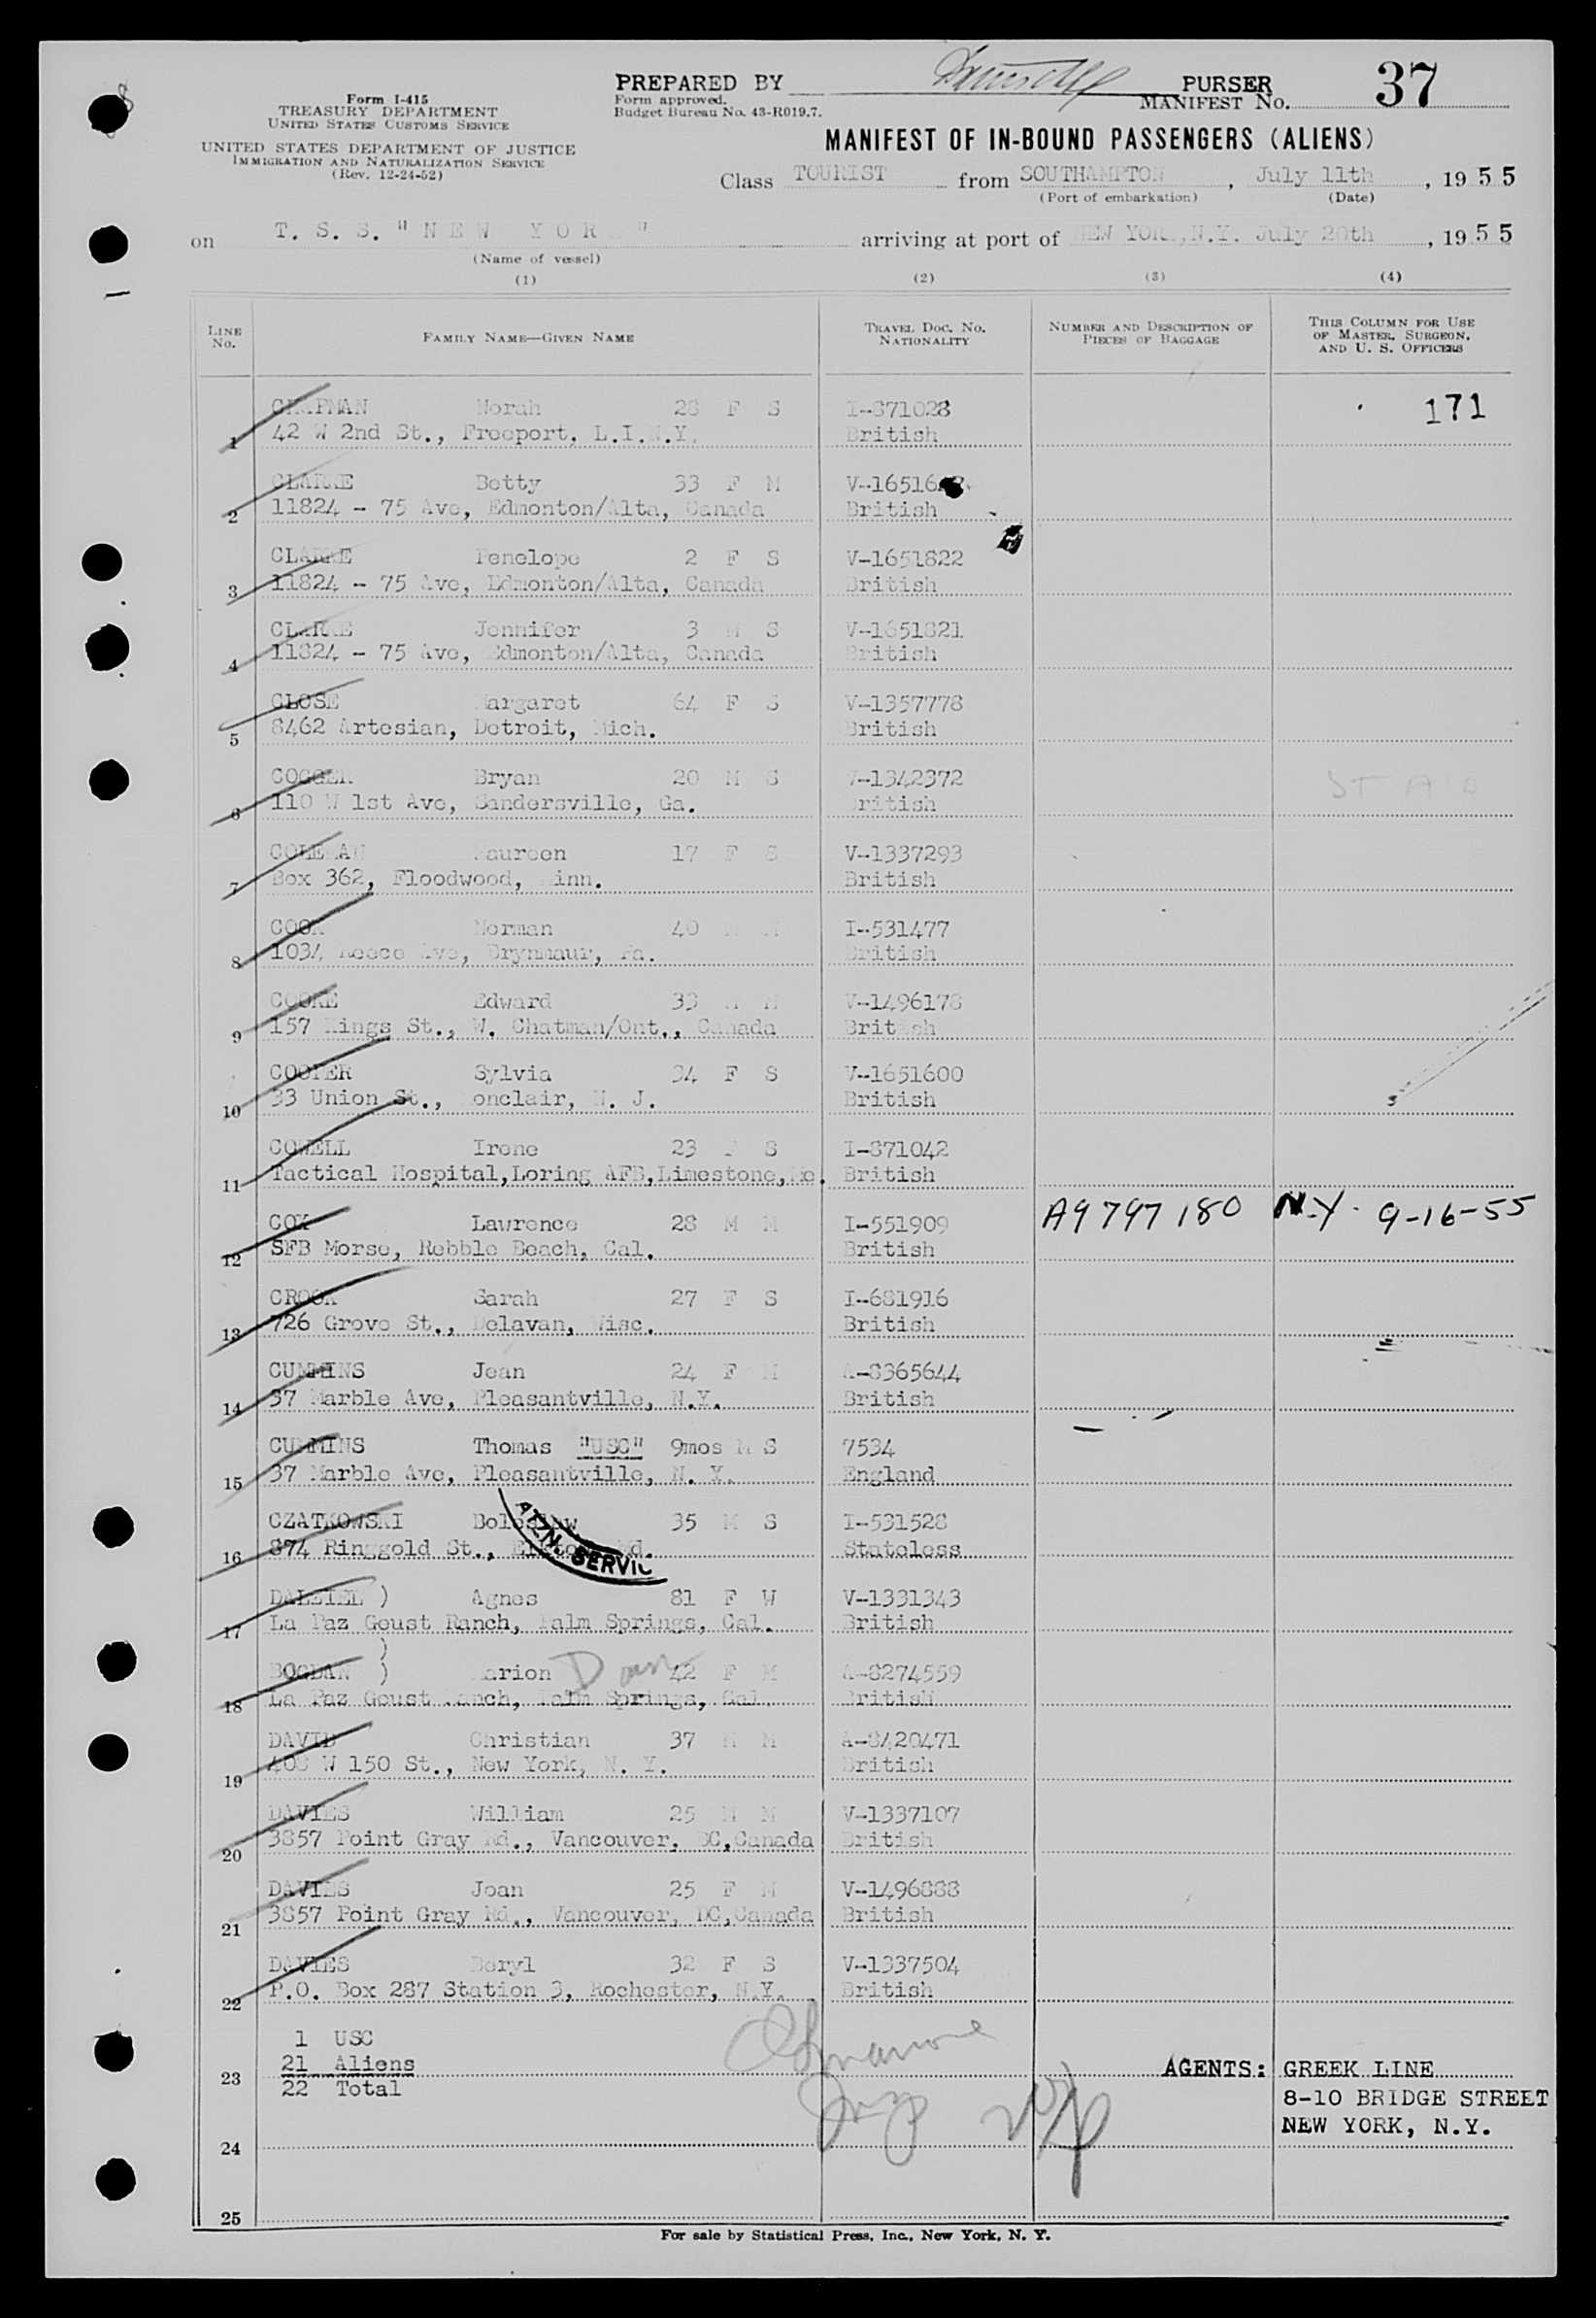 PREPARED BY PURSER 37
Form I-415
TREASURY DEPARTMENT
UNITED STATES CUSTOMS SERVICE
Form approved.
Budget Bureau No. 43-R019.7.
MANIFEST No.
UNITED STATES DEPARTMENT OF JUSTICE
IMMIGRATION AND NATURALIZATION SERVICE
(Rev. 12-24-52)
MANIFEST OF IN-BOUND PASSENGERS (ALIENS)
Class TOURIST from SOUTHAMPTON, July 11th, 1955
(Port of embarkation) (Date)
on T. S. S. "NEW YORK" arriving at port of NEW YORK, N.Y. July 20th, 1955
(Name of vessel)
(1) (2) (3) (4)
LINE No. FAMILY NAME—GIVEN NAME TRAVEL DOC. No. NATIONALITY NUMBER AND DESCRIPTION OF PIECES OF BAGGAGE THIS COLUMN FOR USE OF MASTER, SURGEON, AND U. S. OFFICERS
CHAPMAN Norah 28 F S I-871028 171
1 42 W 2nd St., Freeport, L.I.N.Y. British
CLARKE Betty 33 F M V-16516
2 11824 - 75 Ave, Edmonton/Alta, Canada British
CLARKE Penelope 2 F S V-1651822
3 11824 - 75 Ave, Edmonton/Alta, Canada British
CLARKE Jennifer 3 M S V-1651821
4 11824 - 75 Ave, Edmonton/Alta, Canada British
CLOSE Margaret 64 F S V-1357778
5 8462 Artesian, Detroit, Mich. British
COGGER Bryan 20 M S V-1342372
6 110 W 1st Ave, Sandersville, Ga. British
COLEMAN Maureen 17 F S V-1337293
7 Box 362, Floodwood, Minn. British
COOK Norman 40 M M I-531477
8 1034 Reece Ave, Brynmaur, Pa. British
COOKE Edward 33 M M V-1496178
9 157 Kings St., W. Chatman/Ont., Canada British
COOPER Sylvia 34 F S V-1651600
10 33 Union St., Monclair, N. J. British
COWELL Irene 23 F S I-871042
11 Tactical Hospital,Loring AFB,Limestone,Me. British
COX Lawrence 28 M M I-551909 A9797180 N.Y. 9-16-55
12 SFB Morse, Rebble Beach, Cal. British
CROOK Sarah 27 F S I-681916
13 726 Grove St., Delavan, Wisc. British
CUMMINS Jean 24 F M A-8365644
14 37 Marble Ave, Pleasantville, N.Y. British
CUMMINS Thomas "USC" 9mos M S 7534
15 37 Marble Ave, Pleasantville, N. Y. England
CZATKOWSKI Boleslaw 35 M S I-531528
16 874 Ringgold St., Elkton, Md. Stateless
ATZN. SERVIC
DALZIEL ) Agnes 81 F W V-1331343
17 La Paz Goust Ranch, Palm Springs, Cal. British
)
BOGDAN ) Marion 42 F M A-8274559
18 La Paz Goust Ranch, Palm Springs, Cal British
DAVID Christian 37 M M A-8420471
19 408 W 150 St., New York, N. Y. British
DAVIES William 25 M M V-1337107
20 3857 Point Gray Rd., Vancouver, BC,Canada British
DAVIES Joan 25 F M V-1496888
21 3857 Point Gray Rd., Vancouver, BC,Canada British
DAVIES Beryl 32 F S V-1337504
22 P.O. Box 287 Station 3, Rochester, N.Y. British
1 USC
23 21 Aliens AGENTS: GREEK LINE
22 Total 8-10 BRIDGE STREET
NEW YORK, N.Y.
24
25
For sale by Statistical Press, Inc., New York, N. Y.